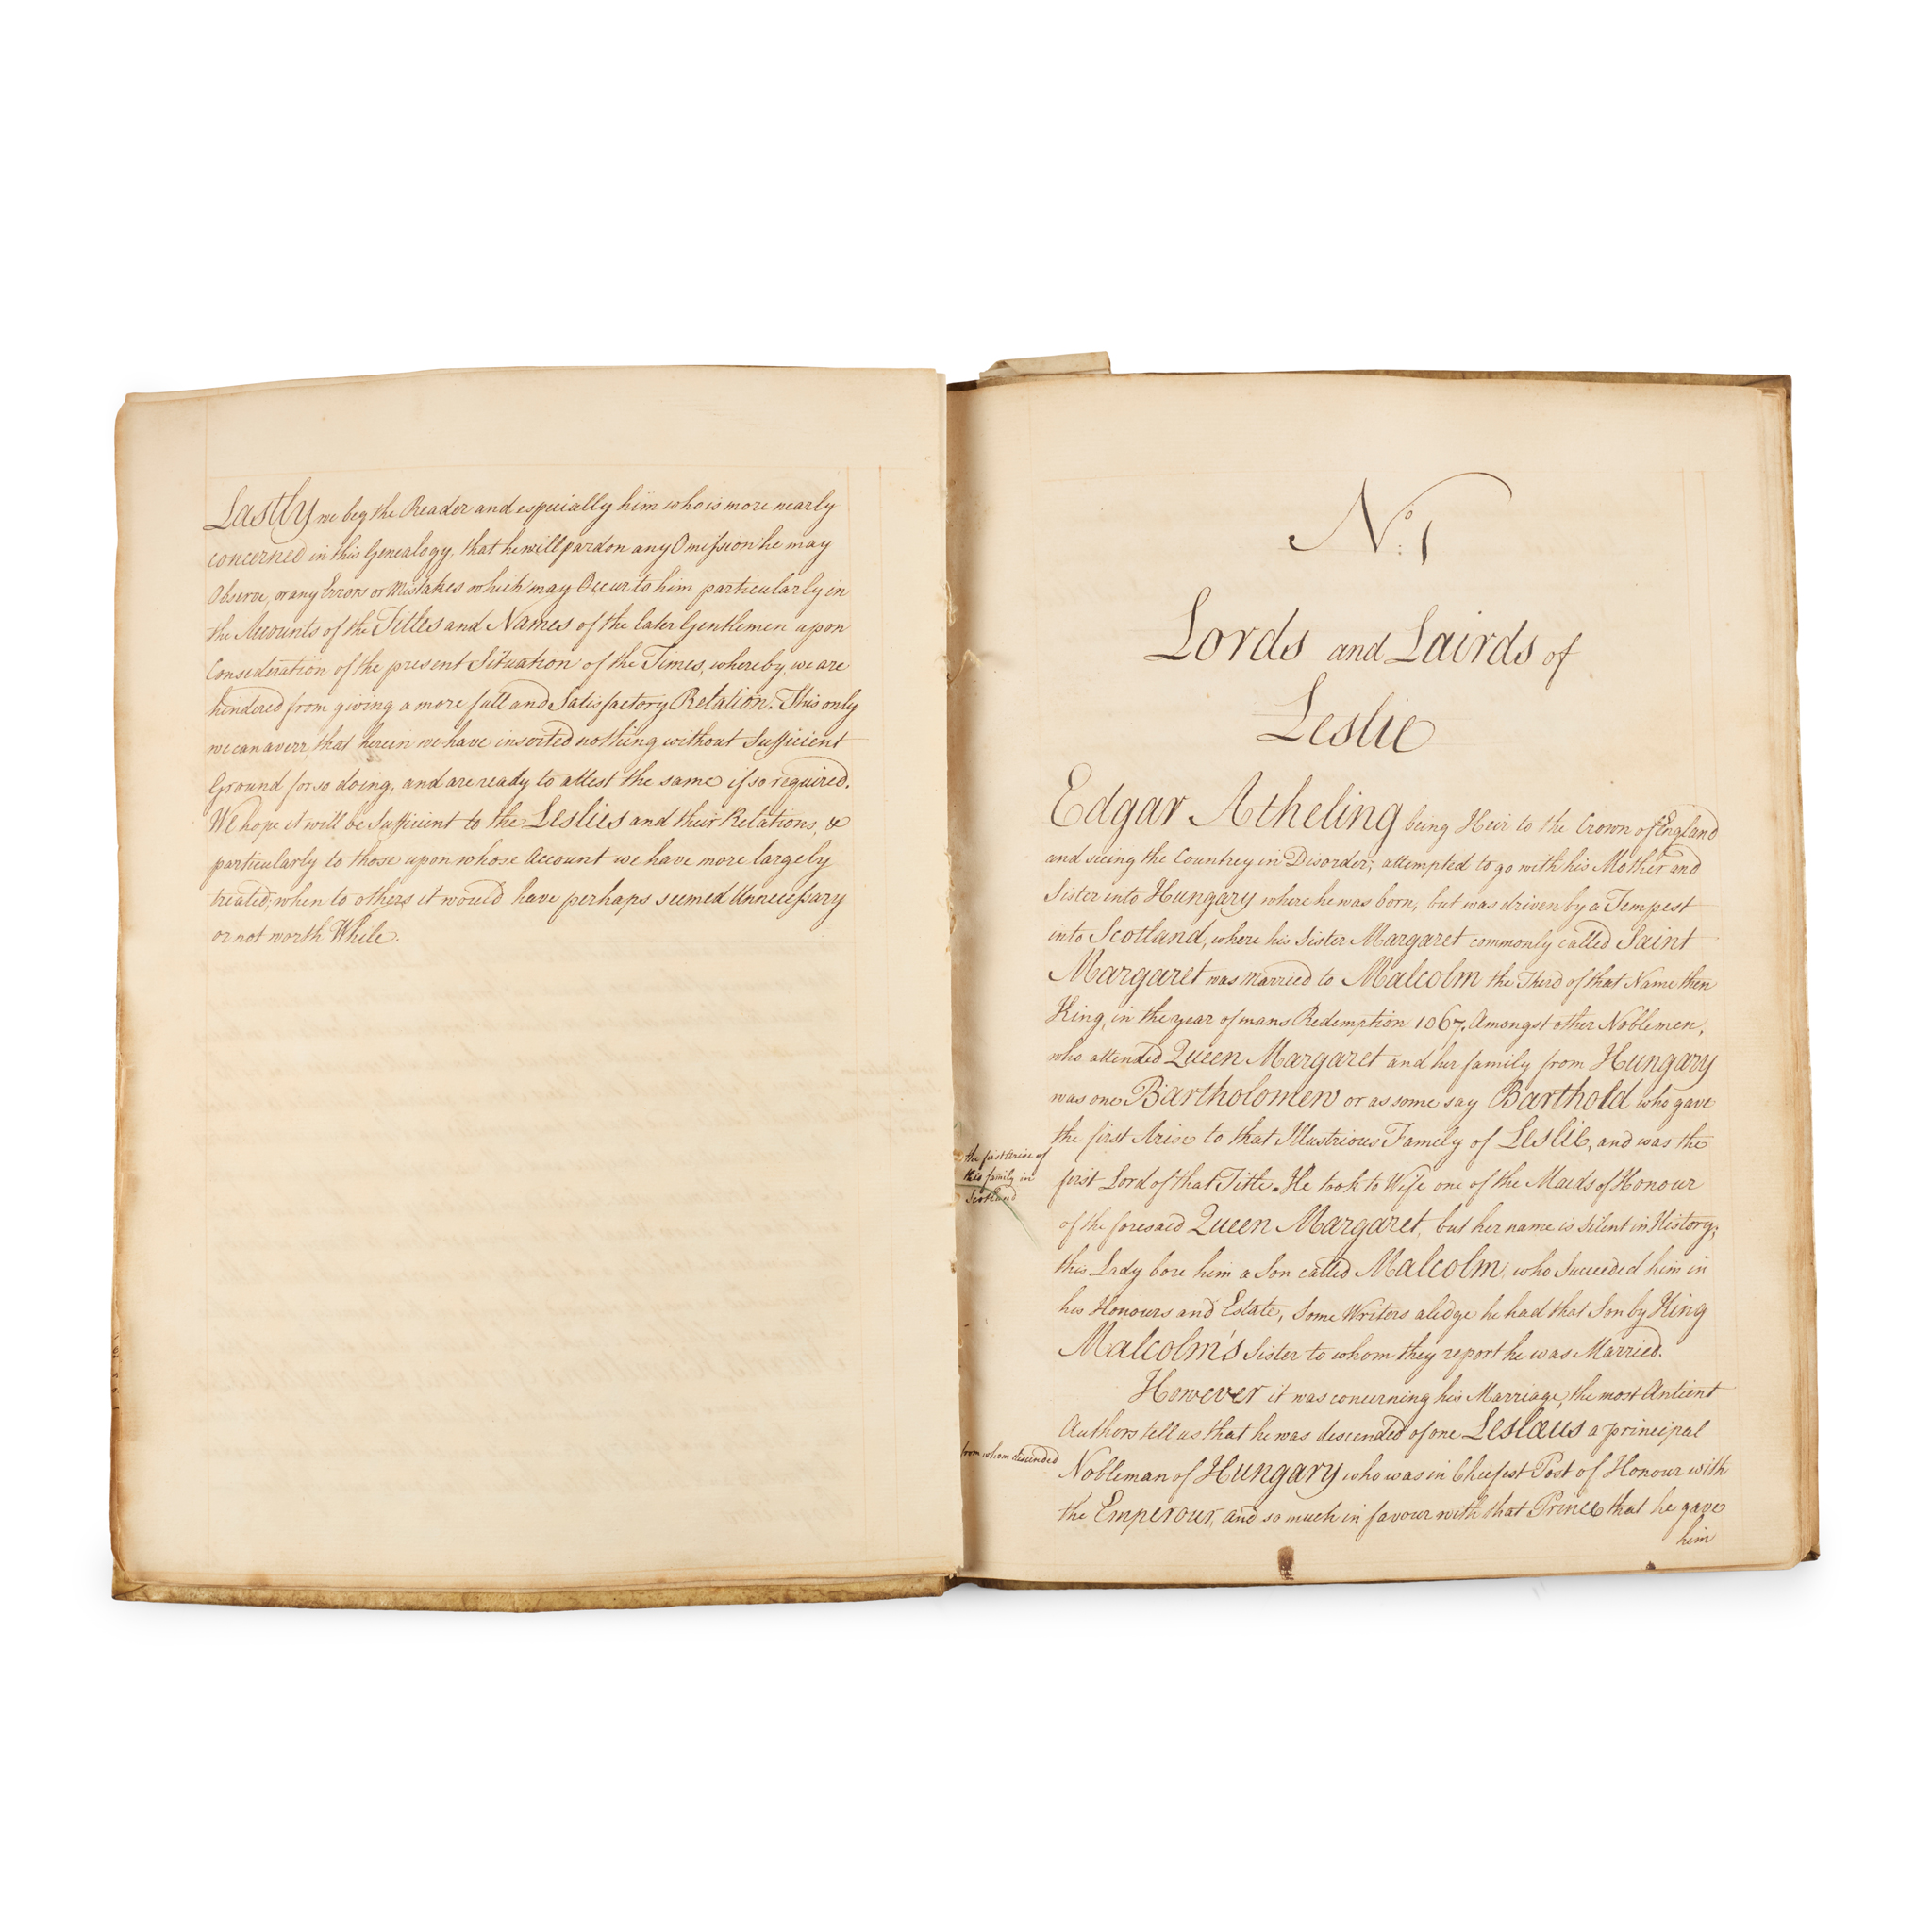 Lastly we beg the Reader and especially him who is more nearly
concerned in this Genealogy, that he will pardon any Omission he may
Observe, or any Errors or Mistakes which may Occur to him particularly in
the Accounts of the Titles and Names of the later Gentlemen upon
Consideration of the present Situation of the Times, whereby, we are
hindered from giving a more full and Satisfactory Relation. This only
we can averr, that herein we have inserted nothing without Sufficient
Ground for so doing, and are ready to attest the same if so required.
We hope it will be Sufficient to the Leslies and their Relations, &
particularly to those upon whose Account we have more largely
treated; when to others it would have perhaps seemed Unnecessary
or not worth While.
No: 1
Lords and Lairds of
Leslie
Edgar Atheling being Heir to the Crown of England
and seeing the Countrey in Disorder, attempted to go with his Mother and
Sister into Hungary where he was born, but was driven by a Tempest
into Scotland, where his Sister Margaret commonly called Saint
Margaret was Married to Malcolm the Third of that Name then
King, in the year of mans Redemption 1067. Amongst other Noblemen,
who attended Queen Margaret and her family from Hungary
was one Bartholomew or as some say Barthold who gave
the first Arise to that Illustrious Family of Leslie, and was the
first Lord of that Title. He took to Wife one of the Maids of Honour
of the foresaid Queen Margaret, but her name is Silent in History;
this Lady bore him a Son called Malcolm, who Succeeded him in
his Honours and Estate, Some Writers aledge he had that Son by King
Malcolm's Sister to whom they report he was Married.
However it was concerning his Marriage, the most Antient
Authors tell us that he was descended of one Leslaus a principal
Nobleman of Hungary who was in Chiefest Post of Honour with
the Emperour, and so much in favour with that Prince that he gave
him
the first arise of
this family in
Scotland
from whom descended